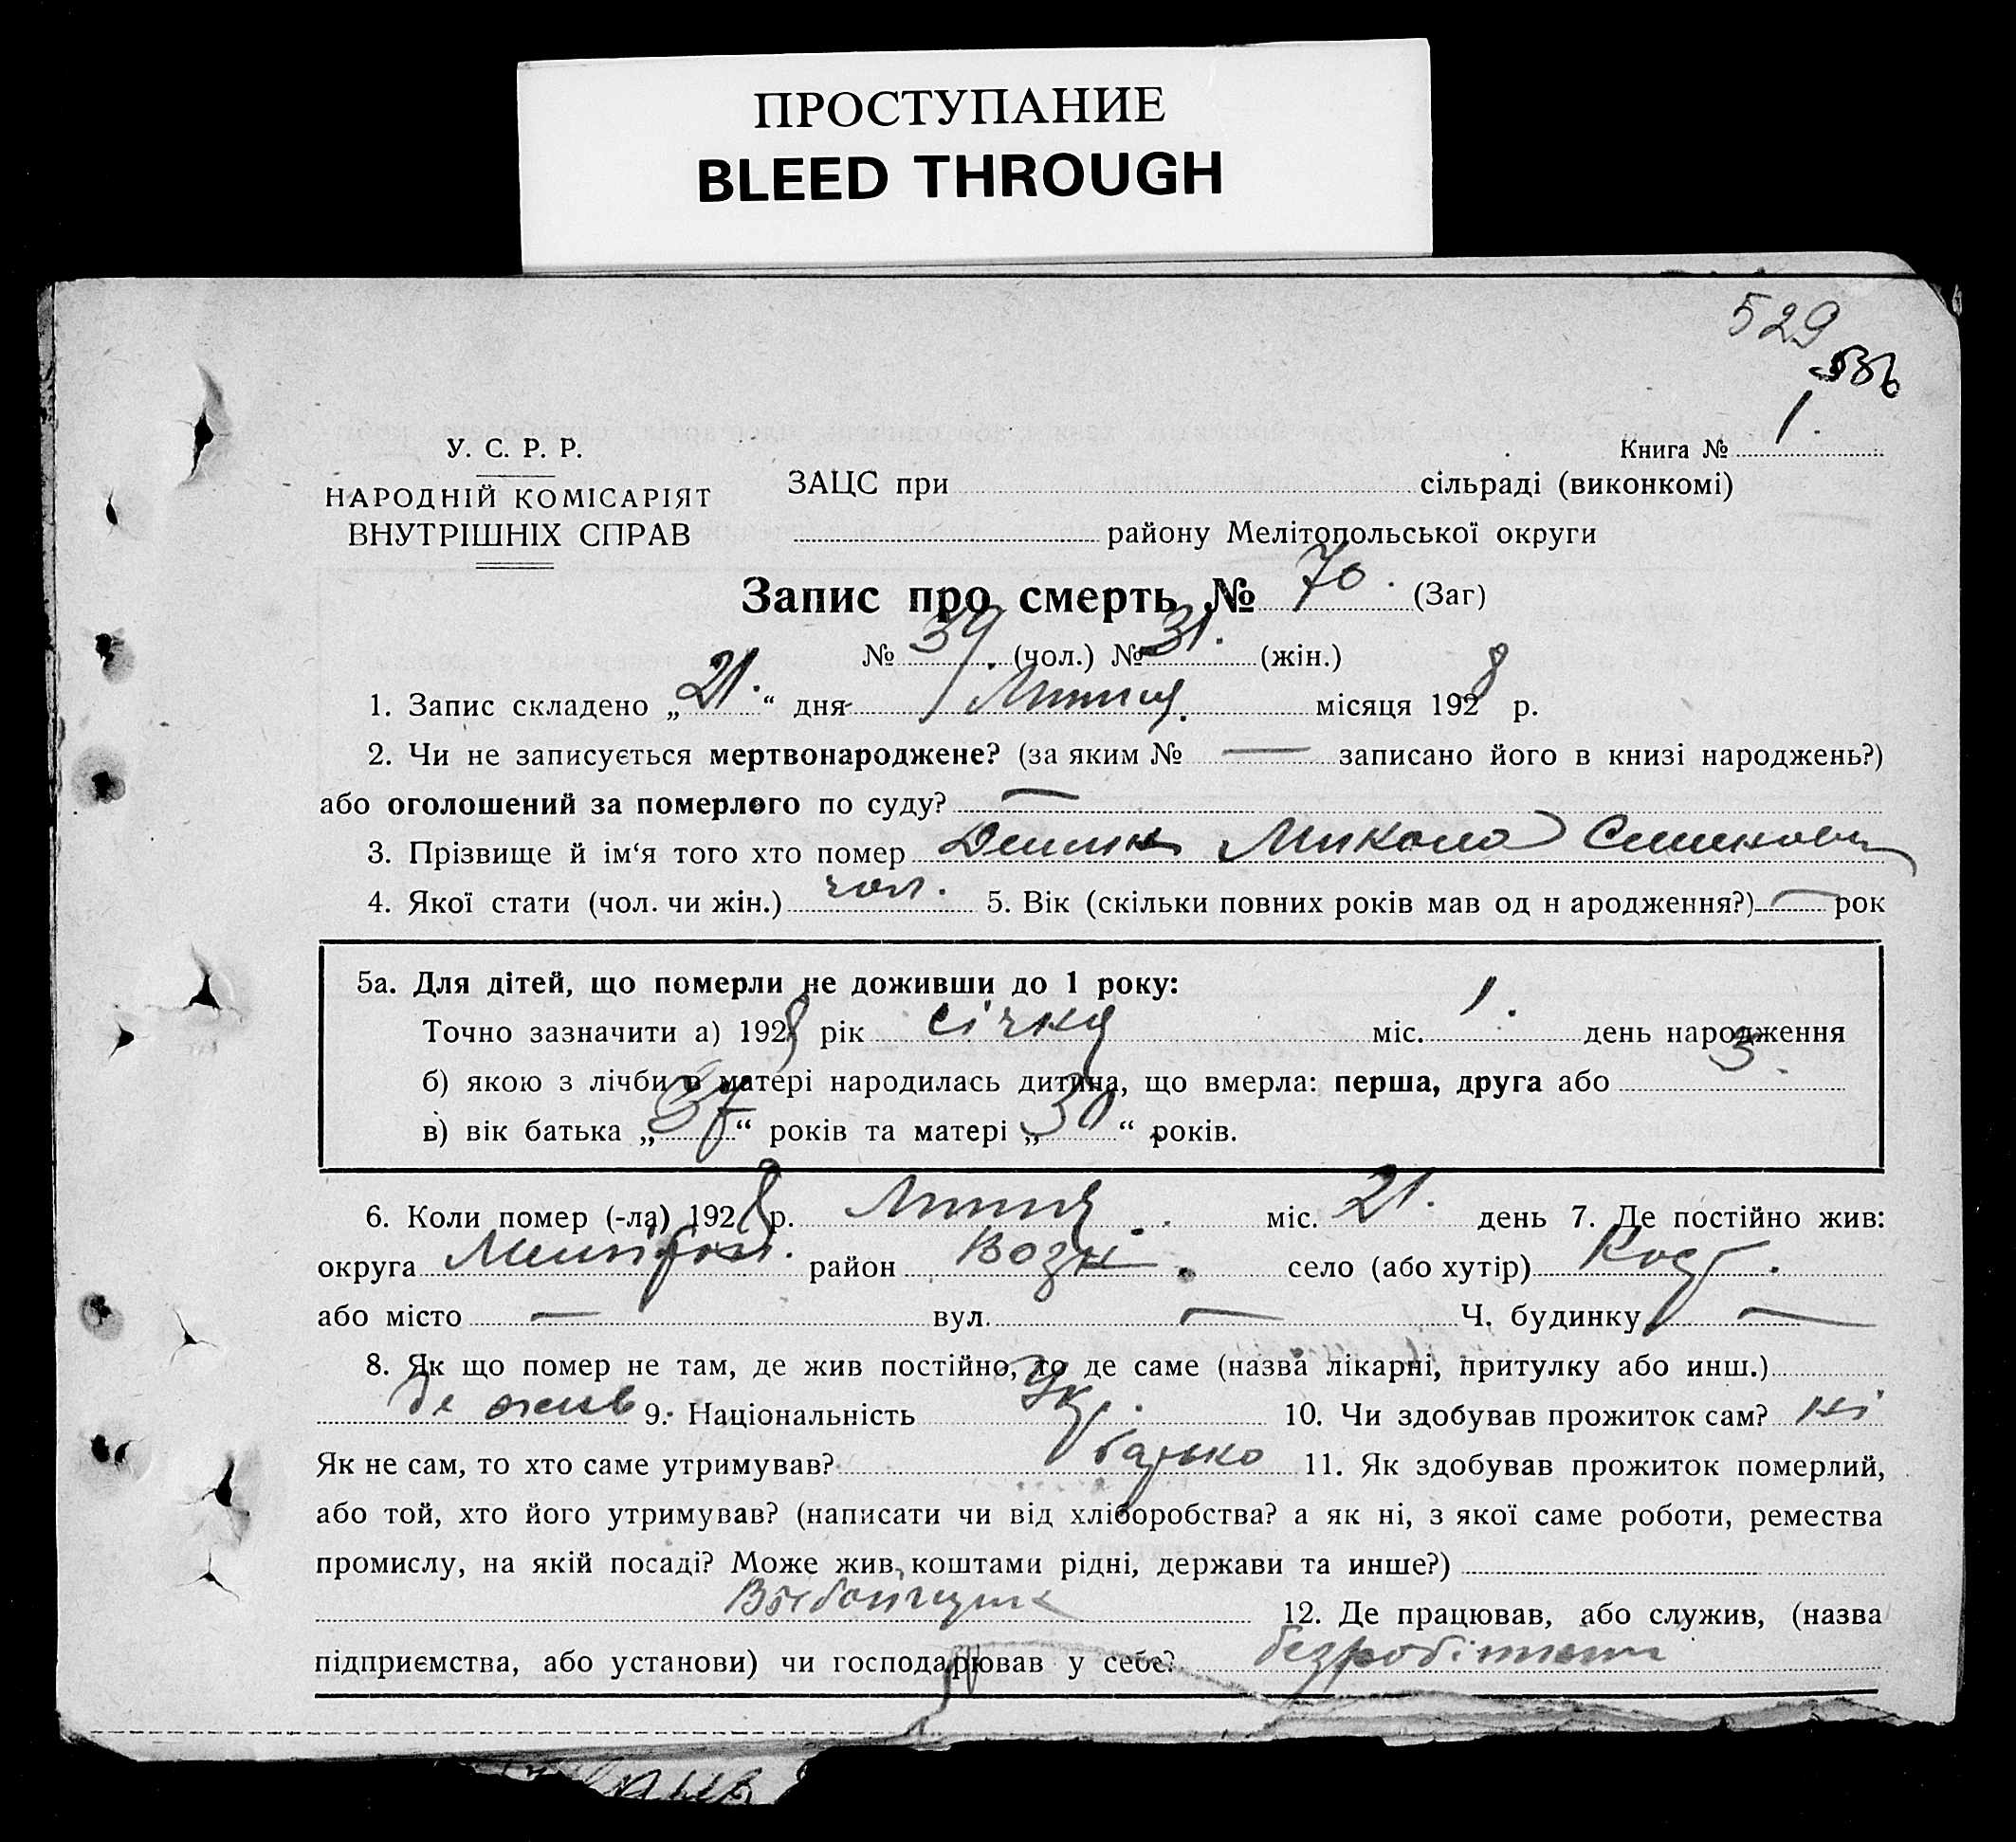 ПРОСТУПАНИЕ
BLEED THROUGH
529
536
У. С. Р. Р.
НАРОДНІЙ КОМІСАРІЯТ
ВНУТРІШНІХ СПРАВ
Книга № 1.
ЗАЦС при сільраді (виконкомі)
району Мелітопольської округи
Запис про смерть № 70. (Заг)
№ 39. (чол.) № 31. (жін.)
1. Запис складено „21.“ дня Липня місяця 1928 р.
2. Чи не записується мертвонароджене? (за яким № — записано його в книзі народжень?)
або оголошений за померлого по суду? —
3. Прізвище й ім‘я того хто помер Микола
4. Якої стати (чол. чи жін.) чол. 5. Вік (скільки повних років мав од н ародження?) — рок
5а. Для дітей, що померли не доживши до 1 року:
Точно зазначити а) 1928 рік січня міс. 1. день народження
б) якою з лічби в матері народилась дитина, що вмерла: перша, друга або 3.
в) вік батька „37“ років та матері „30“ років.
6. Коли помер (-ла) 1928 р. Липня міс. 21. день 7. Де постійно жив:
округа район село (або хутір)
або місто — вул. — Ч. будинку —
8. Як що помер не там, де жив постійно, то де саме (назва лікарні, притулку або инш.)
де жив 9. Національність Укр. 10. Чи здобував прожиток сам? ні
Як не сам, то хто саме утримував? батько 11. Як здобував прожиток померлий,
або той, хто його утримував? (написати чи від хліборобства? а як ні, з якої саме роботи, ремества
промислу, на якій посаді? Може жив, коштами рідні, держави та инше?)
12. Де працював, або служив, (назва
підприємства, або установи) чи господарював у себе?